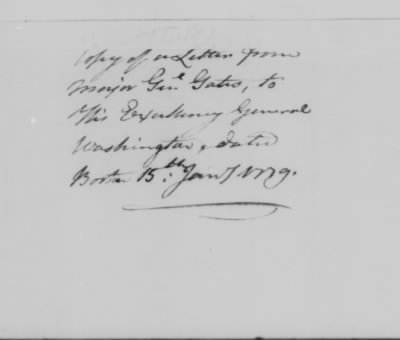 Copy of a Letter from
Major Gen.l Gates, to
His Excellency General
Washington, dated
Boston 15.th Jan.y 1779.